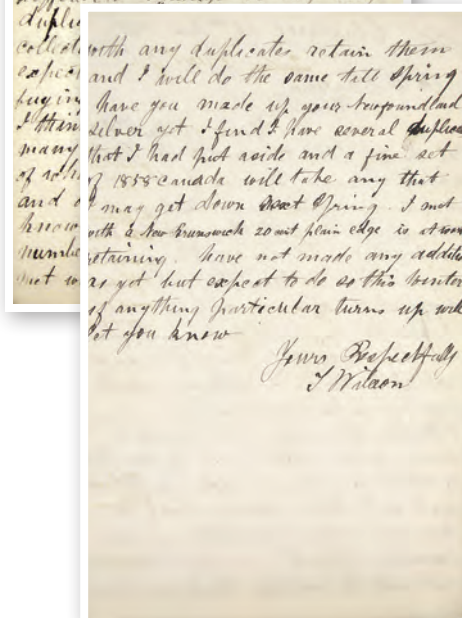 duplic
collect
expect
buying
I thin
many
and
know
numbe
met w
with any duplicates retain them
and I will do the same till Spring
have you made up your Newfoundland
silver yet I find I have several duplica
that I had put aside and a fine set
of 1858 canada will take any that
I may get down next Spring. I met
with a New Brunswick 20 cent plain edge is it wor
retaining. have not made any additio
as yet but expect to do so this winter
if anything particular turns up will
let you know
Yours Respectfully
T Wilson